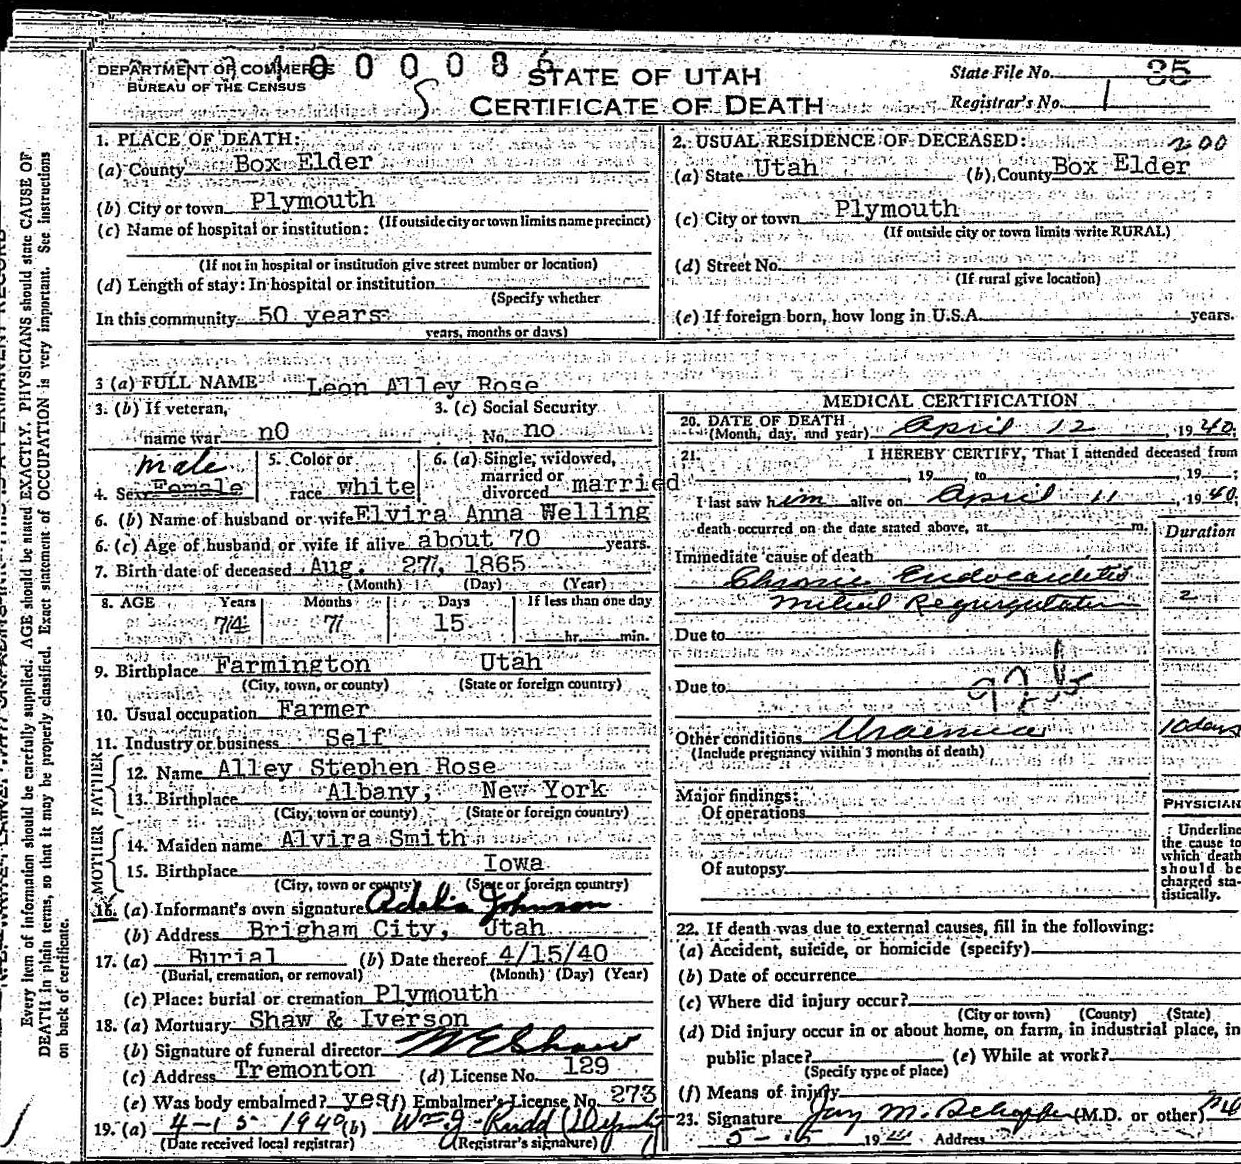 DEPARTMENT OF COMMERCE
BUREAU OF THE CENSUS
STATE OF UTAH
CERTIFICATE OF DEATH
State File No. 35
Registrar's No. 1
1. PLACE OF DEATH:
(a) County Box Elder
(b) City or town Plymouth
(If outside city or town limits name precinct)
(c) Name of hospital or institution:
(If not in hospital or institution give street number or location)
(d) Length of stay: In hospital or institution
(Specify whether
In this community 50 years
years, months or days)
2. USUAL RESIDENCE OF DECEASED: 200
(a) State Utah (b) County Box Elder
(c) City or town Plymouth
(If outside city or town limits write RURAL)
(d) Street No.
(If rural give location)
(e) If foreign born, how long in U.S.A. years.
3 (a) FULL NAME Leon Alley Rose
3. (b) If veteran, 3. (c) Social Security
name war nO No. no
male
4. Sex Female 5. Color or race white 6. (a) Single, widowed, married or divorced married
6. (b) Name of husband or wife Elvira Anna Welling
6. (c) Age of husband or wife if alive about 70 years.
7. Birth date of deceased Aug. 27, 1865
(Month) (Day) (Year)
8. AGE Years Months Days If less than one day
74 7 15 hr. min.
9. Birthplace Farmington Utah
(City, town, or county) (State or foreign country)
10. Usual occupation Farmer
11. Industry or business Self
FATHER
12. Name Alley Stephen Rose
13. Birthplace Albany, New York
(City, town or county) (State or foreign country)
MOTHER
14. Maiden name Alvira Smith
15. Birthplace Iowa
(City, town or county) (State or foreign country)
16. (a) Informant's own signature Adelia Johnson
(b) Address Brigham City, Utah
17. (a) Burial (b) Date thereof 4/15/40
(Burial, cremation, or removal) (Month) (Day) (Year)
(c) Place: burial or cremation Plymouth
18. (a) Mortuary Shaw & Iverson
(b) Signature of funeral director W E Shaw
(c) Address Tremonton (d) License No. 129
(e) Was body embalmed? yes (f) Embalmer's License No. 273
19. (a) 4-15-1940 (b) Wm J. Rudd Deputy
(Date received local registrar) (Registrar's signature)
MEDICAL CERTIFICATION
20. DATE OF DEATH
(Month, day, and year) April 12, 1940;
21. I HEREBY CERTIFY, That I attended deceased from
, 19 , to , 19 ;
I last saw him alive on April 11, 1940;
death occurred on the date stated above, at m.
Duration
Immediate cause of death
Chronic Endocarditis
Mitral Regurgitation 2
Due to
Due to
92b
Other conditions Uraemia 10 days
(Include pregnancy within 3 months of death)
Major findings:
Of operations
Of autopsy
PHYSICIAN
Underline
the cause to
which death
should be
charged sta-
tistically.
22. If death was due to external causes, fill in the following:
(a) Accident, suicide, or homicide (specify)
(b) Date of occurrence
(c) Where did injury occur?
(City or town) (County) (State)
(d) Did injury occur in or about home, on farm, in industrial place, in
public place? (e) While at work?
(Specify type of place)
(f) Means of injury
23. Signature (M.D. or other)
19 Address
Every item of information should be carefully supplied. AGE should be stated EXACTLY. PHYSICIANS should state CAUSE OF
DEATH in plain terms, so that it may be properly classified. Exact statement of OCCUPATION is very important. See instructions
on back of certificate.